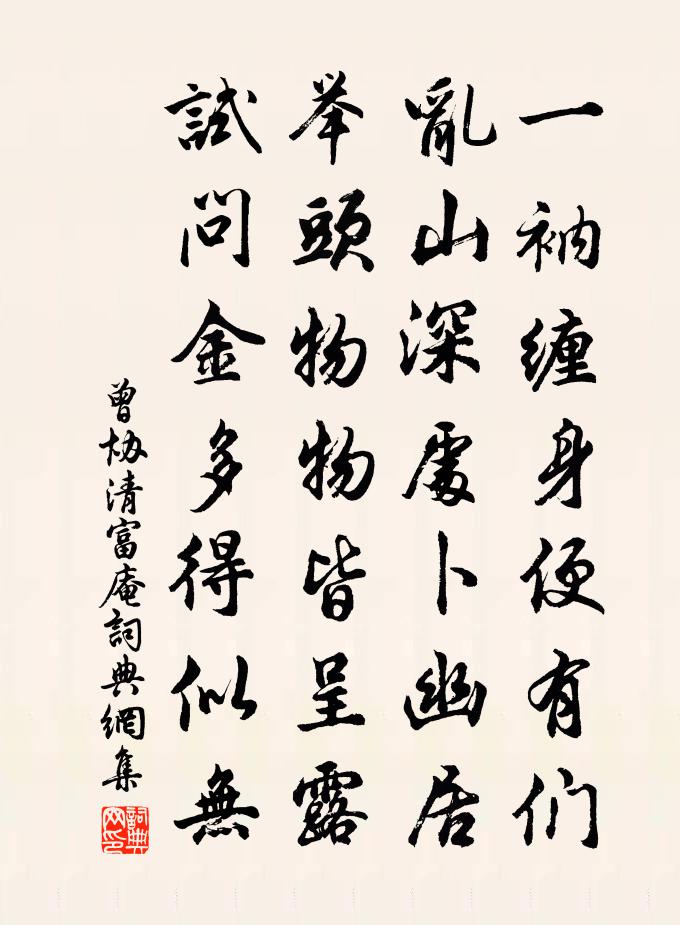 一衲缠身便有们
亂山深處卜幽居
举頭物物皆呈露
試問金多得似無
曾协清富庵詞典網集
詞典网印